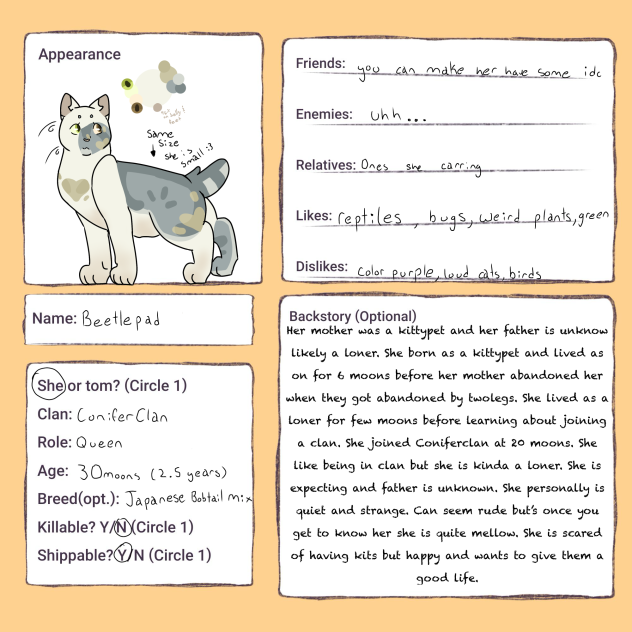 Appearance
Same
Size
she is
small :3
Friends: you can make her have some idc
Enemies: uhh...
Relatives: Ones she carring
Likes: reptiles, bugs, weird plants, green
Dislikes: Color purple, loud cats, birds
Name: Beetlepad
She or tom? (Circle 1)
Clan: ConiferClan
Role: Queen
Age: 30moons (2.5 years)
Breed(opt.): Japanese Bobtail mix
Killable? Y/N (Circle 1)
Shippable? Y/N (Circle 1)
Backstory (Optional)
Her mother was a kittypet and her father is unknow
likely a loner. She born as a kittypet and lived as
on for 6 moons before her mother abandoned her
when they got abandoned by twolegs. She lived as a
loner for few moons before learning about joining
a clan. She joined Coniferclan at 20 moons. She
like being in clan but she is kinda a loner. She is
expecting and father is unknown. She personally is
quiet and strange. Can seem rude but's once you
get to know her she is quite mellow. She is scared
of having kits but happy and wants to give them a
good life.